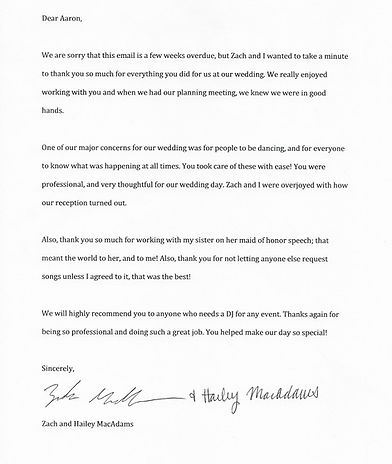 Dear Aaron,
We are sorry that this email is a few weeks overdue, but Zach and I wanted to take a minute
to thank you so much for everything you did for us at our wedding. We really enjoyed
working with you and when we had our planning meeting, we knew we were in good
hands.
One of our major concerns for our wedding was for people to be dancing, and for everyone
to know what was happening at all times. You took care of these with ease! You were
professional, and very thoughtful for our wedding day. Zach and I were overjoyed with how
our reception turned out.
Also, thank you so much for working with my sister on her maid of honor speech; that
meant the world to her, and to me! Also, thank you for not letting anyone else request
songs unless I agreed to it, that was the best!
We will highly recommend you to anyone who needs a DJ for any event. Thanks again for
being so professional and doing such a great job. You helped make our day so special!
Sincerely,
& Hailey MacAdams
Zach and Hailey MacAdams